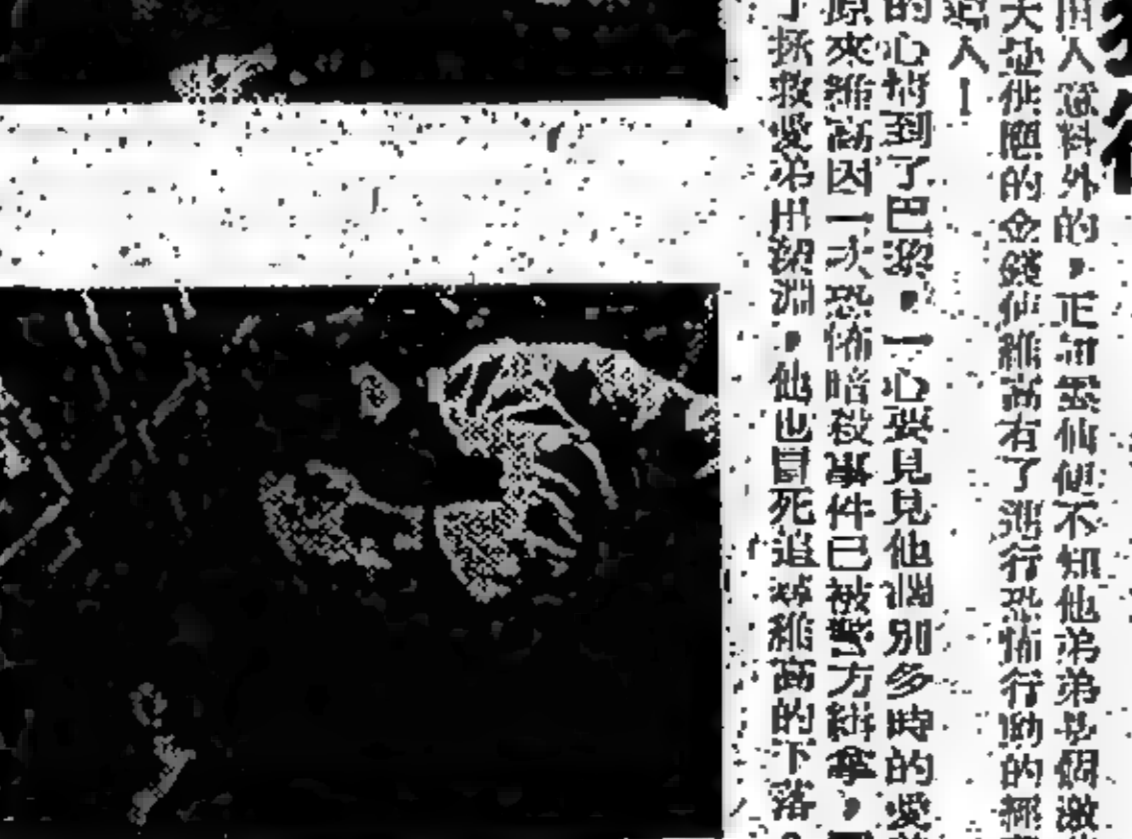 人意料外的,正如雲仙便不知他弟弟是個激
天是供應的金錢使維高有了進行恐怖行動的極
入!
的心情到了巴黎,一心要見見他個別多時的愛
原來維高因一次恐怖暗殺事件已被警方緝拿,
了拯救愛弟出深淵,他也冒死追尋維高的下落。